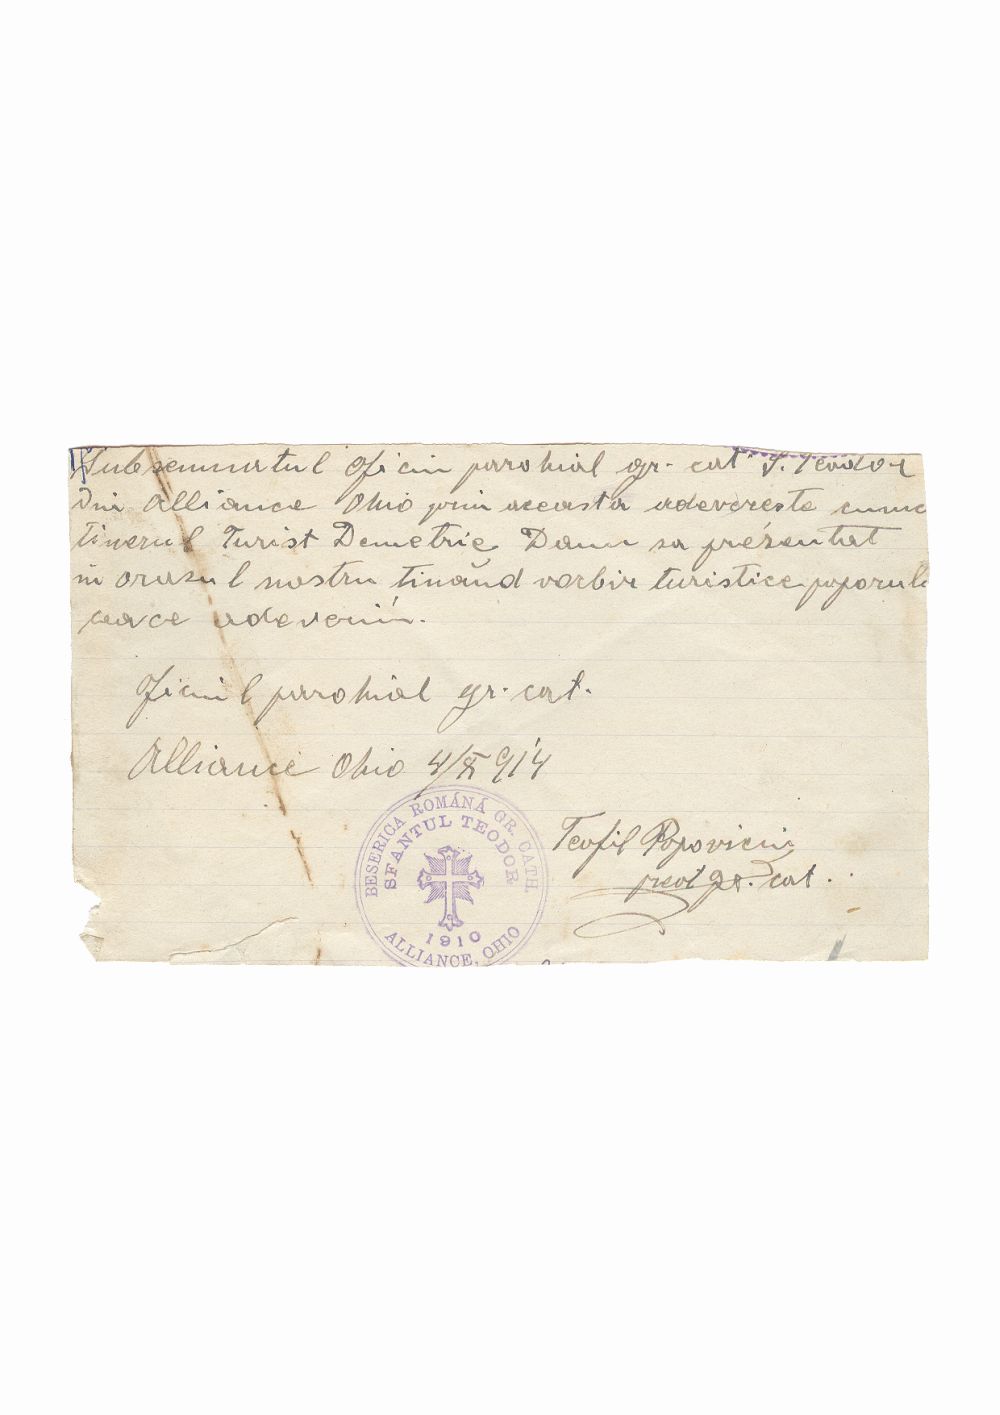 Subsemnatul oficiu parohial gr. cat. S. Teodor
din Alliance Ohio prin aceasta adevereste cumc
tinerul Turist Demetrie Danu sa prézentat
in orasul nostru tinănd vorbir turistice poporul
ceace adeverim.
Oficiul parohial gr. cat.
Alliance Ohio 4/X 914
Teofil Popoviciu
preot gr. cat.
BESERICA ROMÁNĂ GR. CATH.
SFANTUL TEODOR
1910
ALLIANCE, OHIO